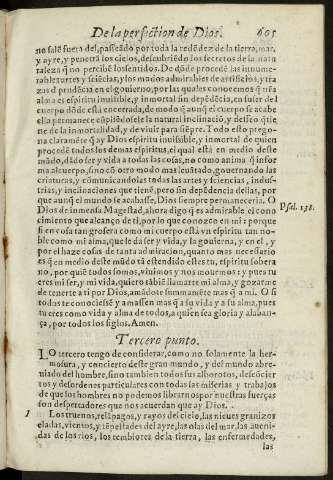 De la perfection de Dios. 605
no salē fuera del, passeādo por toda la redōdez de la tierra, mar,
y ayre, y penetrā los cielos, descubriēdo los secretos de la natu
raleza q̄ no percibē los sentidos. De dōde procedē las innume-
rables artes y sciēcias, y los modos admirables de artificios, y tra
zas d prudēcia en el gouierno, por las quales conocemos q̄ nẽa
alma es espiritu inuisible, y inmortal sin depēdēcia, en su ser del
cuerpo dōde està encerrada, de modo q̄ aunq̄ el cuerpo se acabe
ella permanece cūpliēdosele la natural inclinaciō, y desseo que tie
ne de la inmortalidad, y de viuir para siēpre. Todo esto prego-
na claramēte q̄ ay Dios espiritu inuisible, y inmortal de quien
procedē todos los demas espiritus, el qual està en medio deste
mūdo, dādo ser y vida a todas las cosas, no como anima q̄ infor
ma al cuerpo, sino cō otro modo mas leuātado, gouernando las
criaturas, y comunicādolas todas las artes y sciencias, indus-
trias, y inclinaciones que tienē, pero sin depēdencia dellas, por
que aunq̄ el mundo se acabasse, Dios siempre permaneceria. O
Dios de inmensa Magestad, ahora digo q̄ es admirable, el cono Psal. 138.
cimiento que alcanço de ti, por lo que conozco en mi: porque
si en cosa tan grosera como mi cuerpo està vn espiritu tan no-
ble como mi alma, que le da ser y vida, y la gouierna, y en el, y
por el haze cosas de tanta admiracion, quanto mas necessario
es q̄ en medio deste mūdo tā estendido estes tu, espiritu sobera
no, por quiē todos somos, viuimos y nos mouemos: y pues tu
eres mi ser, y mi vida, quiero tābiē llamarte mi alma, y gozarme
de tenerte a ti por Dios, amādote summamēte mas q̄ a mi. O si
todas te conociessē y amassen mas q̄ a su vida y a su alma, pues
tu eres como vida y alma de todos, a quien sea gloria y alaban-
ça, por todos los siglos. Amen.
Tercero punto.
LO tercero tengo de considerar, como no solamente la her-
mosura, y concierto deste gran mundo, y del mundo abre-
uiado del hombre, sino tambien todos sus alborotos, descōcier
tos y desordenes particulares con todas las miserias y trabajos
de que los hombres no podemos librarnos por nuestras fuerças
son despertadores que nos acuerdan que ay Dios.
1 Los truenos, relāpagos, y rayos del cielo, las nieues granizos
eladas, vientos, y tēpestades del ayre, las olas del mar, las aueni-
das de los rios, los temblores de la tierra, las enfermedades,
las